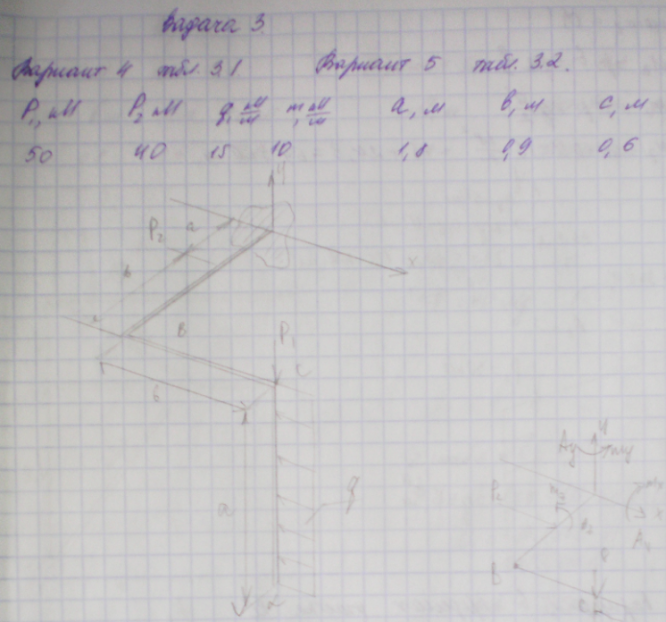 Задача 3
Вариант 4 табл. 3.1 Вариант 5 табл. 3.2.
P₁, кН P₂ кН q, кН/м m, кН/м a, м b, м c, м
50 40 15 10 1,8 0,9 0,6
y
P₂ a
b
x
B
P₁
b
a
q
y
Ay my
P₂
x
B